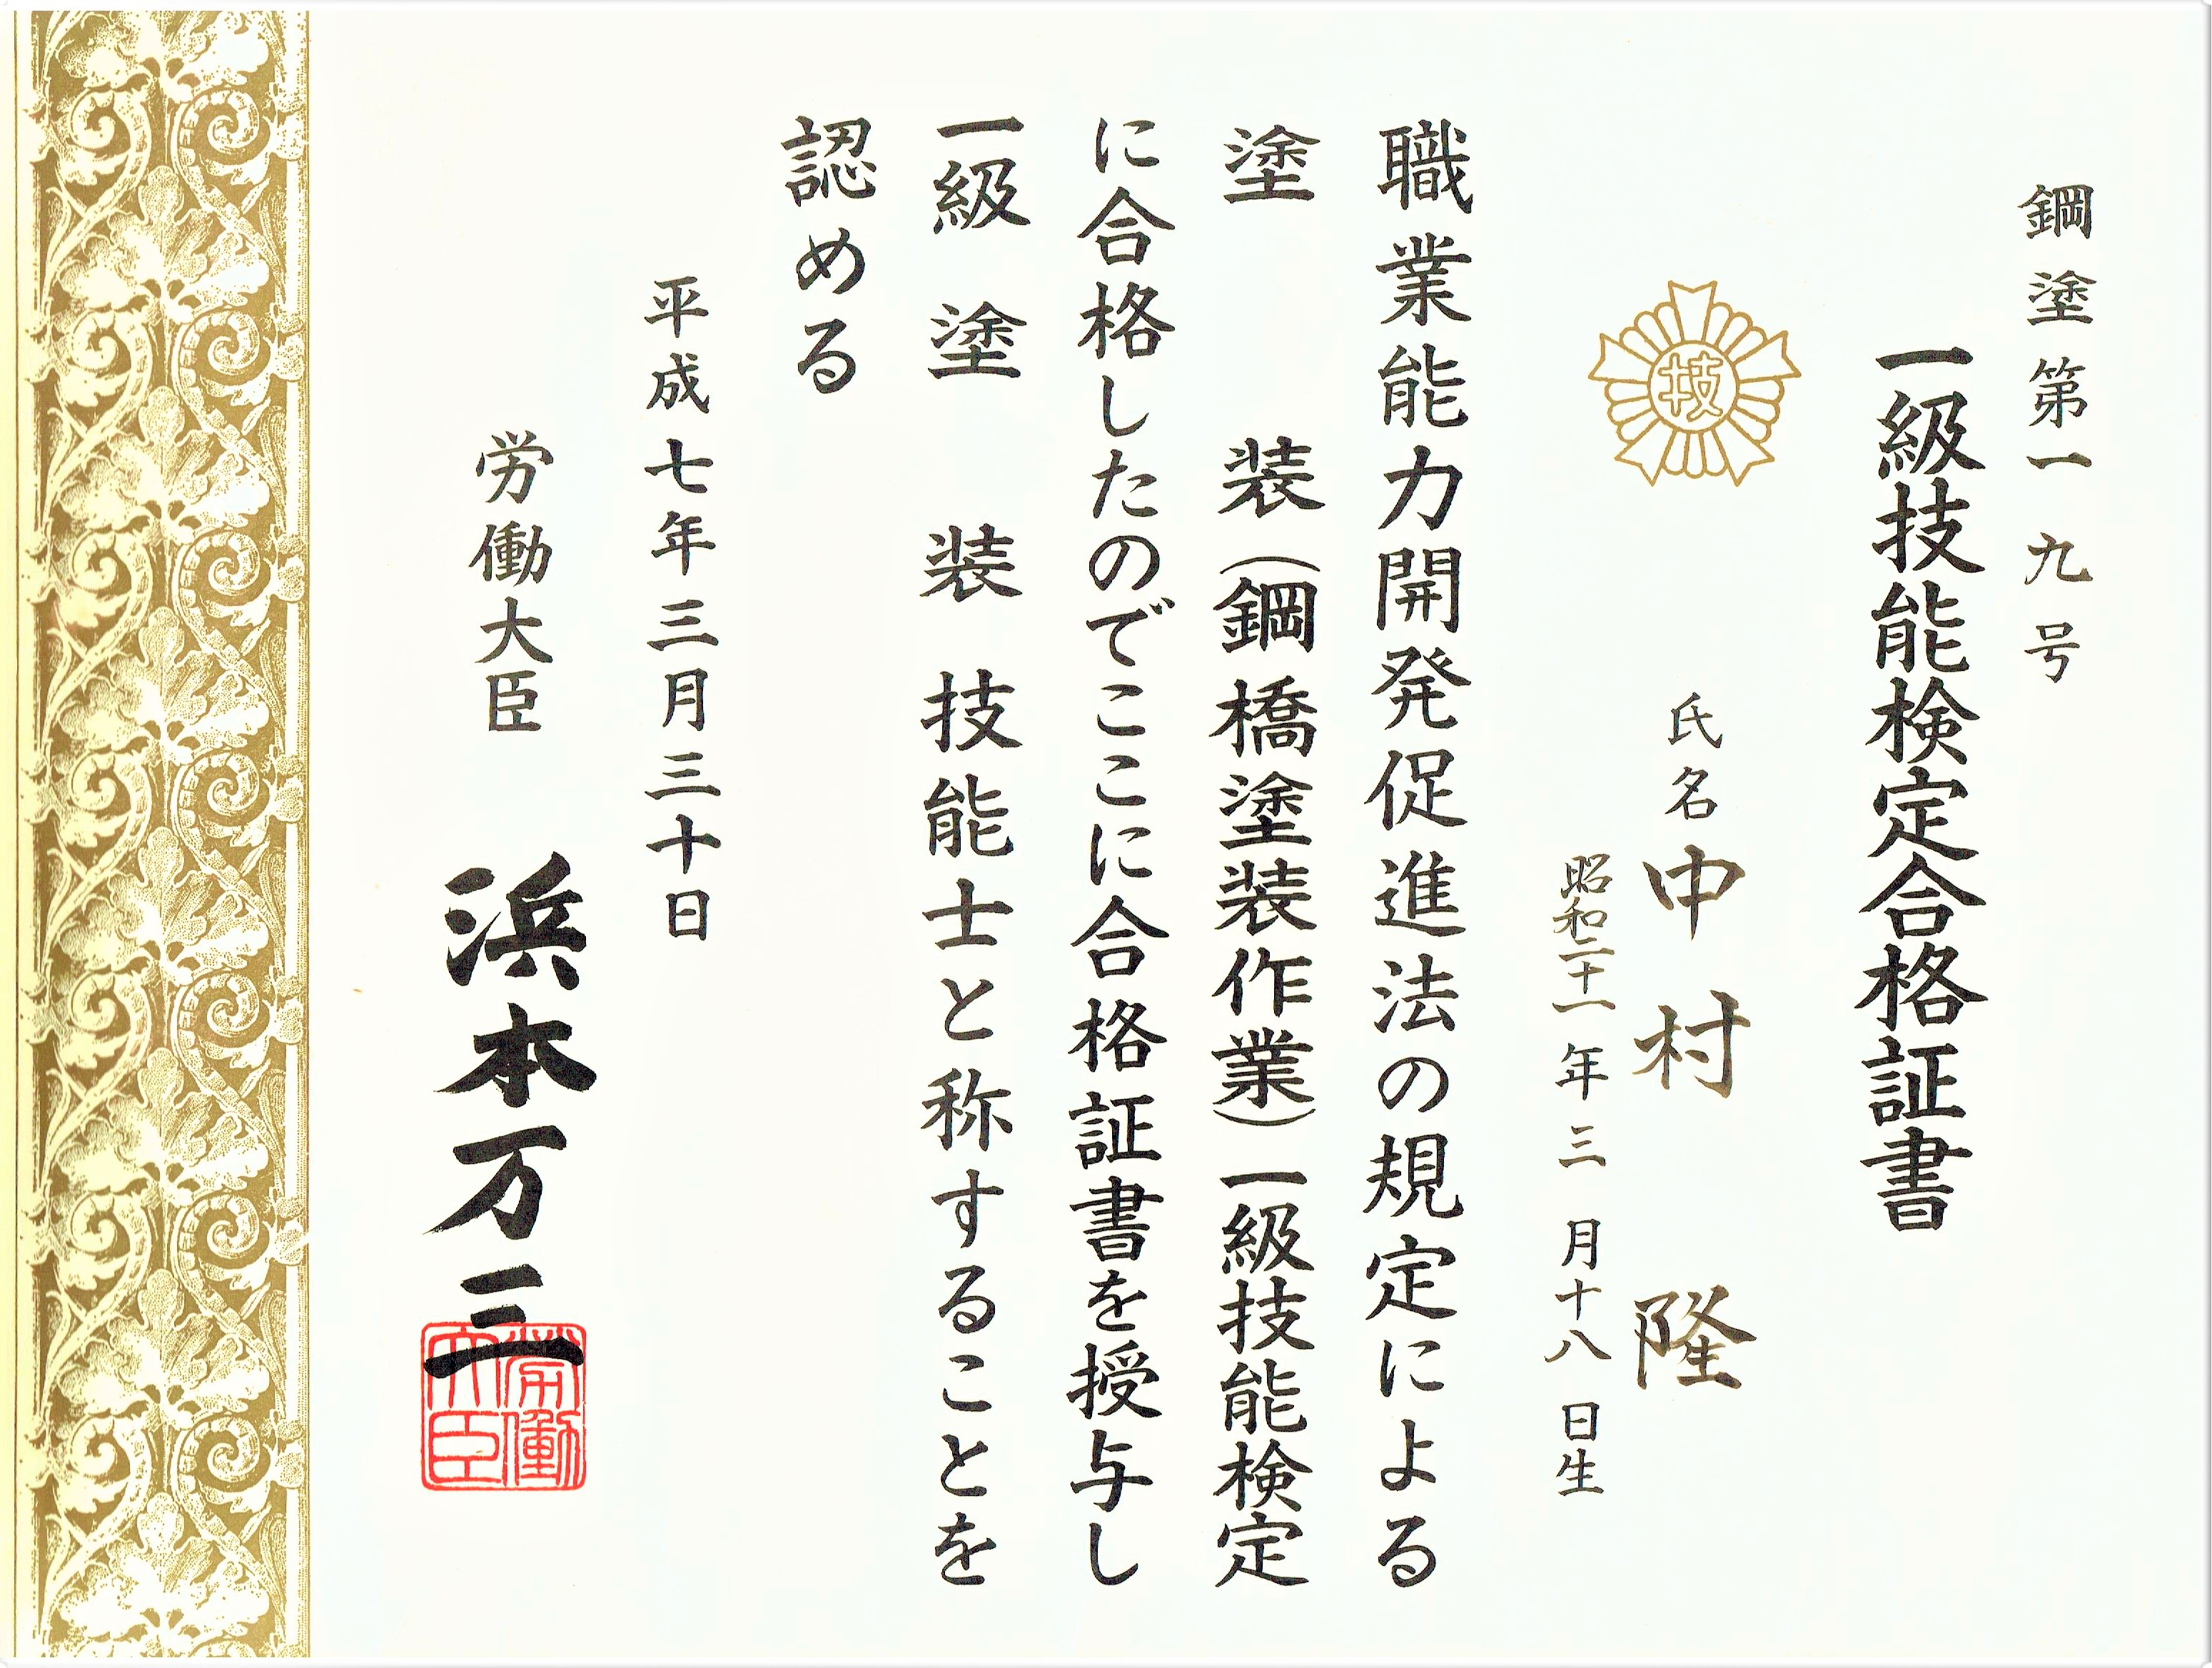 鋼塗第一九号
一級技能検定合格証書
技
氏名中村隆
昭和二十一年三月十八日生
職業能力開発促進法の規定による
塗装(鋼橋塗装作業)一級技能検定
に合格したのでここに合格証書を授与し
一級塗装技能士と称することを
認める
平成七年三月三十日
労働大臣 浜本万三
労働大臣